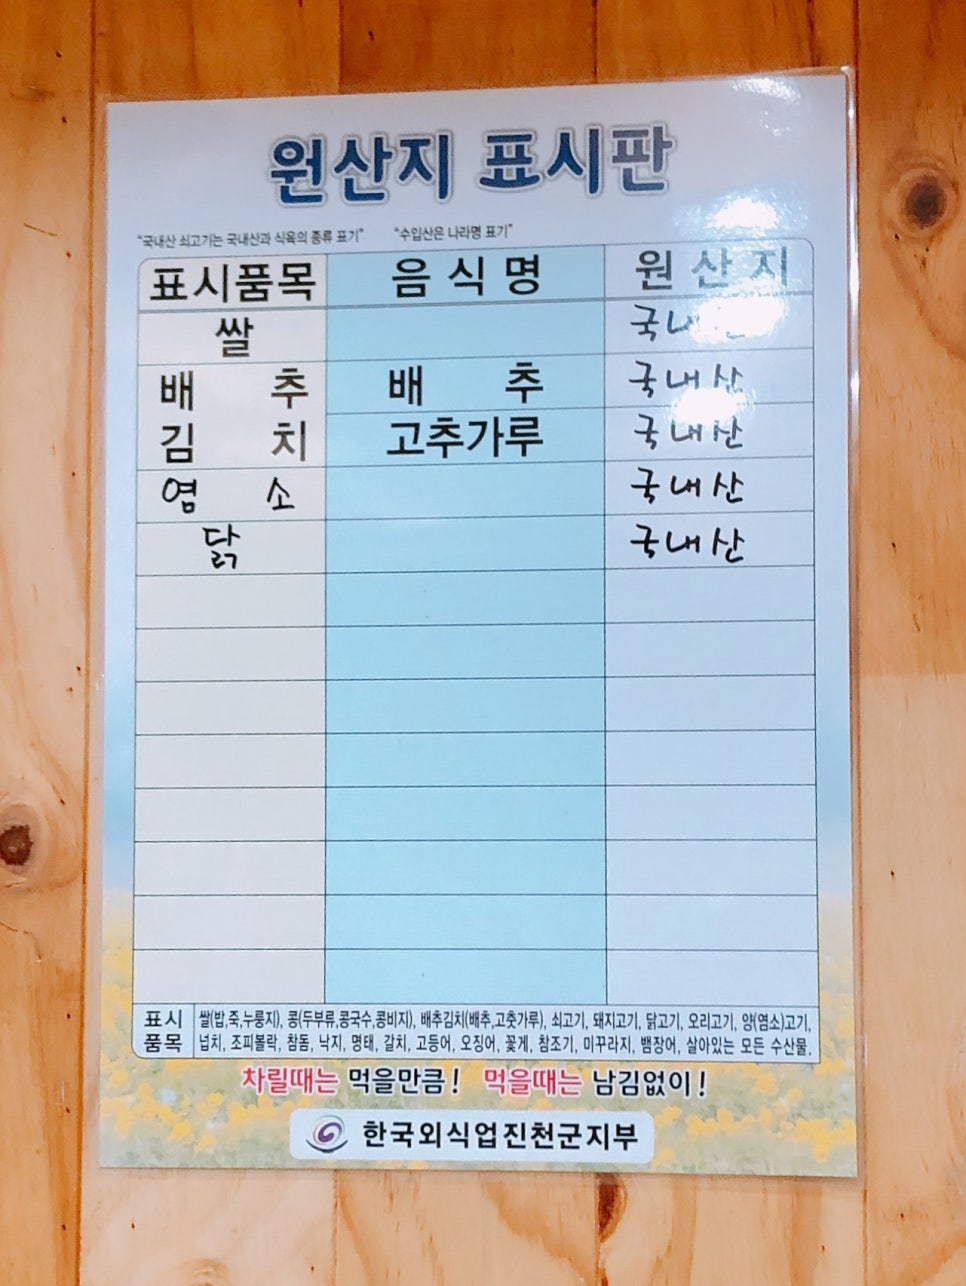 원산지 표시판
"국내산 쇠고기는 국내산과 식육의 종류 표기" "수입산은 나라명 표기"
표시품목 음식명 원산지
쌀
배추 배추 국내산
김치 고추가루 국내산
염소 국내산
닭 국내산
표시 쌀(밥,죽,누룽지), 콩(두부류,콩국수,콩비지), 배추김치(배추,고춧가루), 쇠고기, 돼지고기, 닭고기, 오리고기, 양(염소)고기,
품목 넙치, 조피볼락, 참돔, 낙지, 명태, 갈치, 고등어, 오징어, 꽃게, 참조기, 미꾸라지, 뱀장어, 살아있는 모든 수산물,
차릴때는 먹을만큼! 먹을때는 남김없이!
한국외식업진천군지부